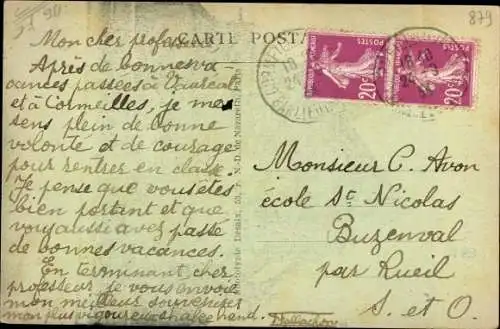 879
CARTE POSTALE
Mon cher professeur
Après de bonnes va-
cances passées à Vauréal
et à Cormeilles, je me
sens plein de bonne
volonté et de courage
pour rentrer en classe
Je pense que vous êtes
bien portant et que
vous aussi avez passé
de bonnes vacances.
En terminant cher
professeur, je vous envoie
mon meilleur souvenir
mon plus vigoureux shake hand.
POSTES
20c
POSTES
20c
Monsieur C. Avon
école St Nicolas
Buzenval
par Rueil
S. et O.